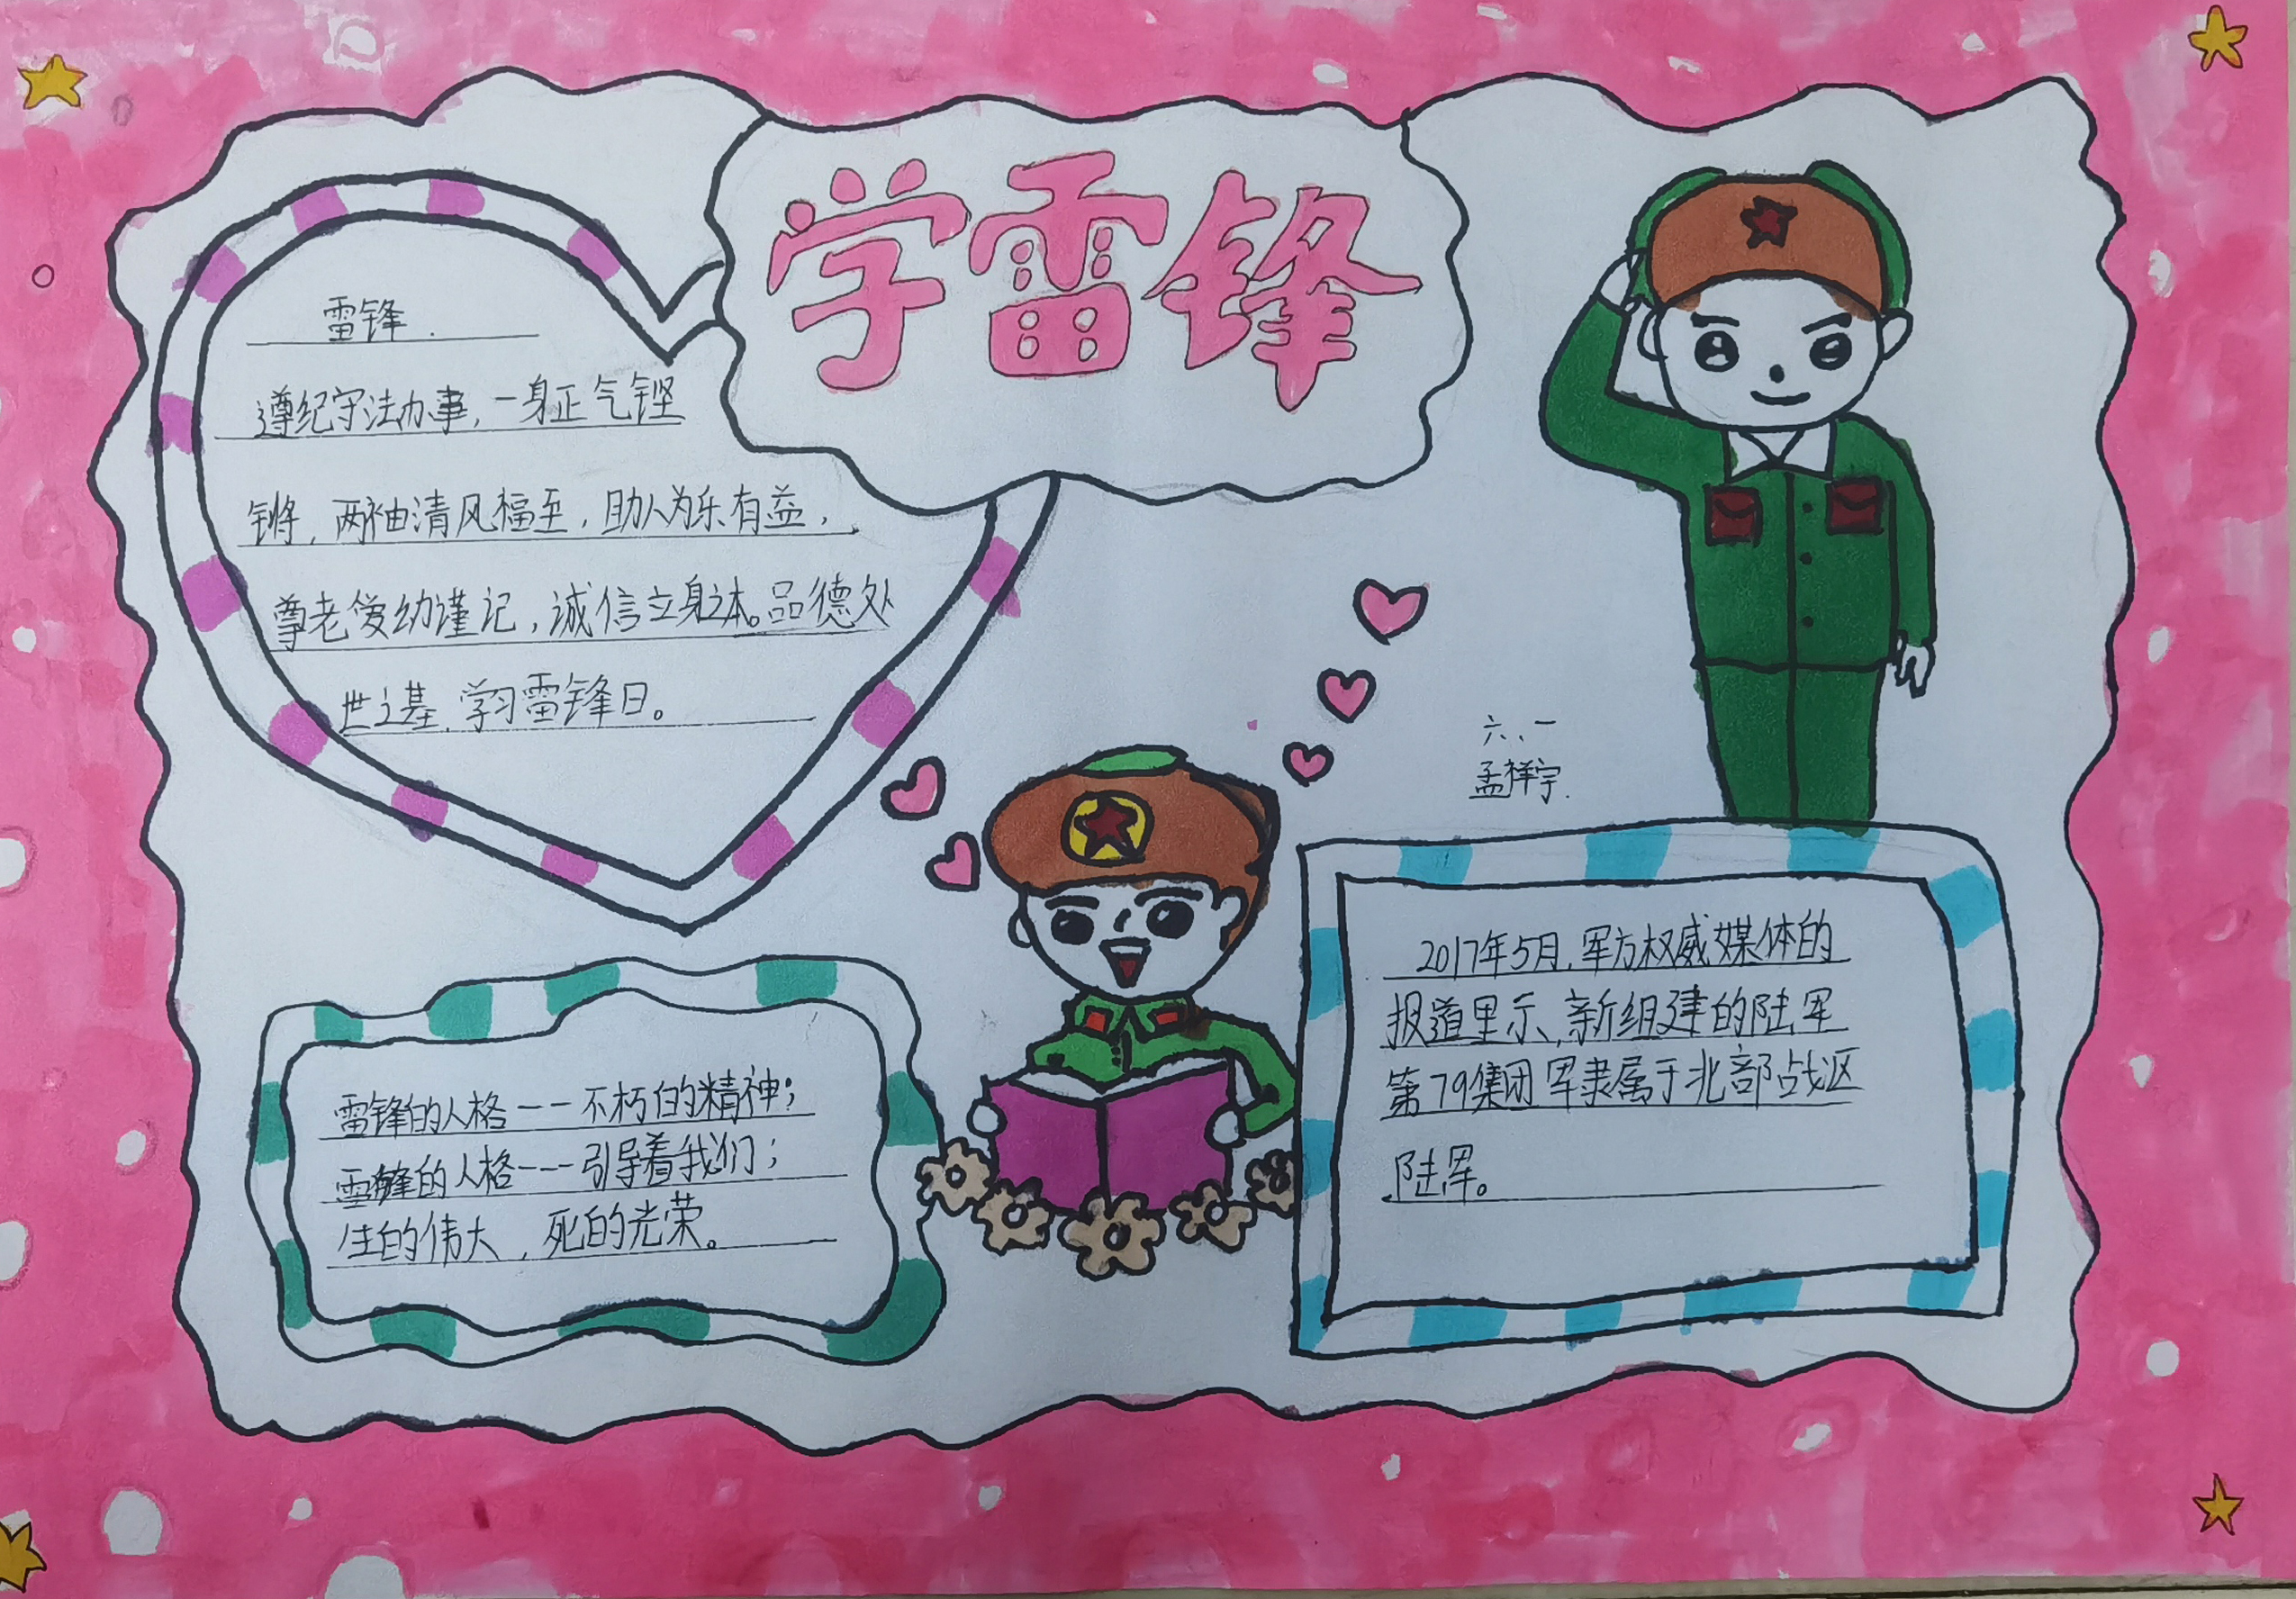 学雷锋
雷锋.
遵纪守法办事,一身正气铿
锵,两袖清风福至,助人为乐有益,
尊老爱幼谨记,诚信立身之本。品德处
世之基,学习雷锋日。
六、一
孟祥宇.
雷锋的人格——不朽的精神;
雷锋的人格---引导着我们;
生的伟大,死的光荣。
2017年5月,军方权威媒体的
报道显示,新组建的陆军
第79集团军隶属于北部战区
陆军。